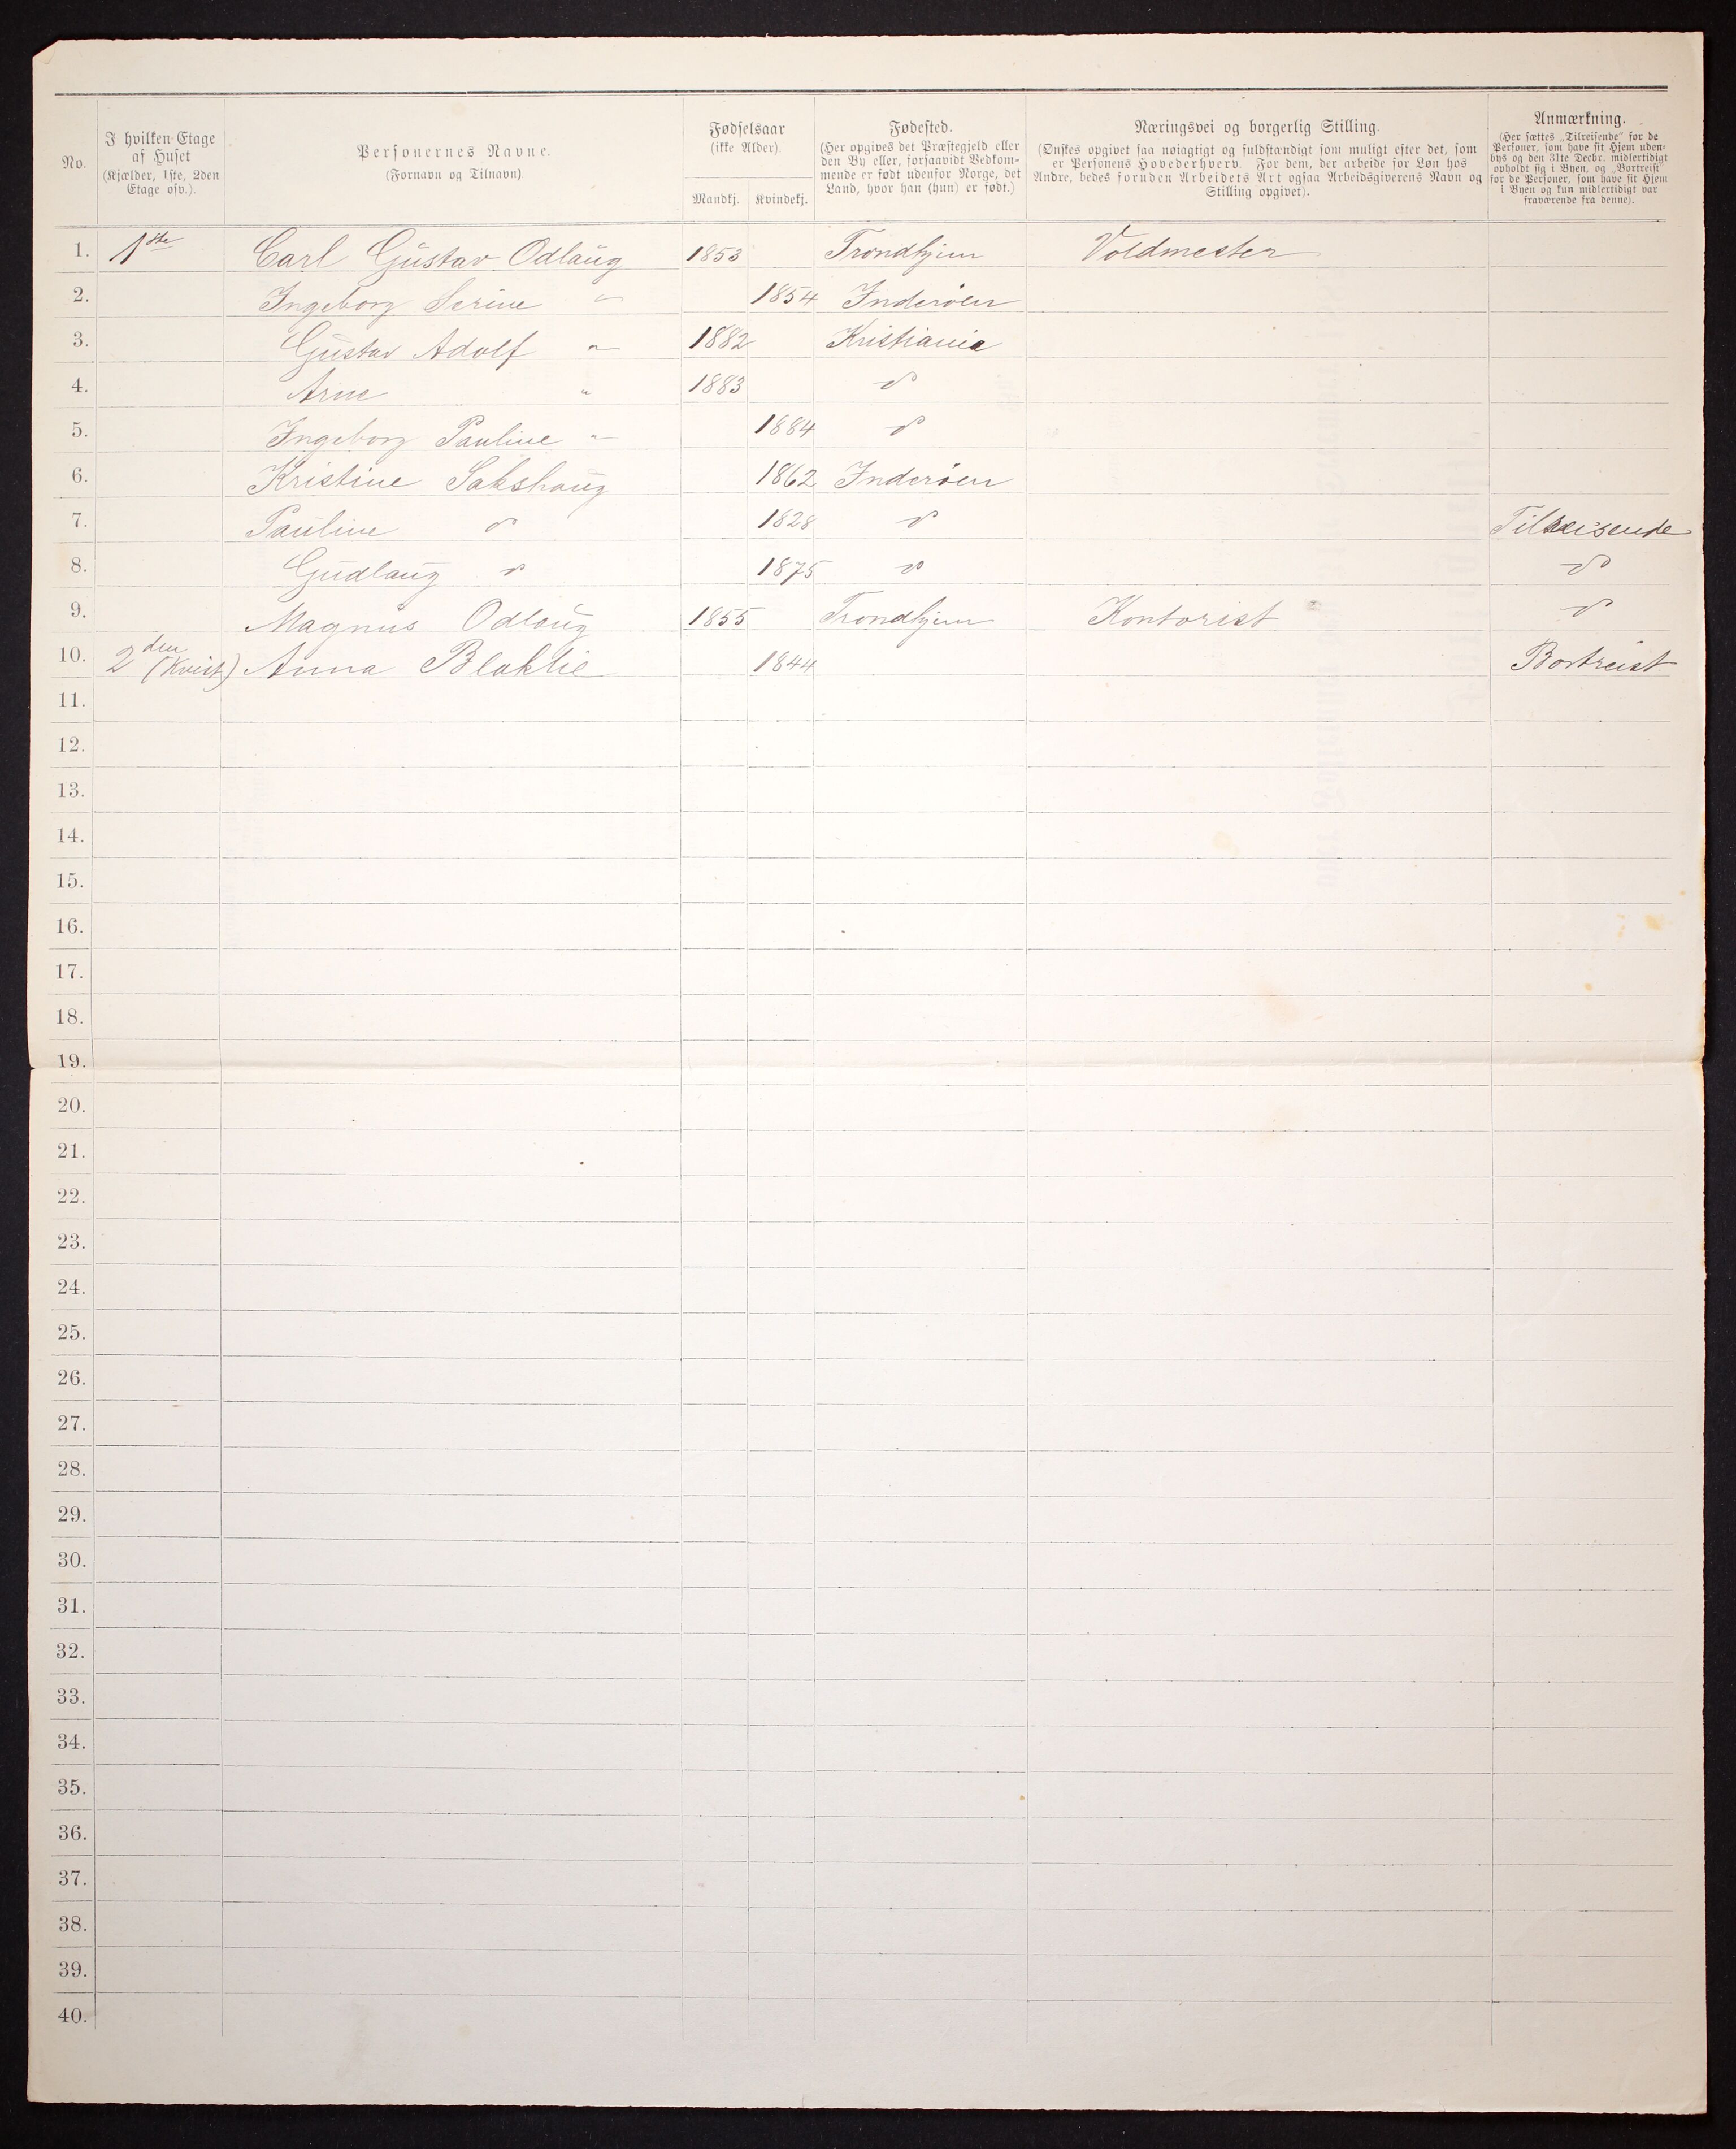 No.
I hvilken Etage af Huset
(Kjælder, 1ste, 2den Etage osv.).
Personernes Navne.
(Fornavn og Tilnavn)
Fødselsaar
(ikke Alder).
Mandkj. Kvindekj.
Fødested.
(Her opgives det Præstegjeld eller
den By eller, forsaavidt Vedkom-
mende er født udenfor Norge, det
Land, hvor han (hun) er født.)
Næringsvei og borgerlig Stilling.
(Ønskes opgivet saa nøiagtigt og fuldstændigt som muligt efter det, som
er Personens Hovederhverv. For dem, der arbeide for Løn hos
Andre, bedes foruden Arbeidets Art ogsaa Arbeidsgiverens Navn og
Stilling opgivet).
Anmærkning.
(Her sættes „Tilreisende" for de
Personer, som have sit Hjem uden-
bys og den 31te Decbr. midlertidigt
opholdt sig i Byen, og „Bortreist"
for de Personer, som have sit Hjem
i Byen og kun midlertidigt var
fraværende fra denne).
1. 1ste Carl Gustav Odlaug 1853 Trondhjem Voldmester
2. Ingeborg Serine " 1854 Inderøen
3. Gustav Adolf " 1882 Kristiania
4. Arne " 1883 do
5. Ingeborg Pauline " 1884 do
6. Kristine Sakshaug 1862 Inderøen
7. Pauline do 1828 do Tilreisende
8. Gudlaug do 1875 do do
9. Magnus Odlaug 1855 Trondhjem Kontorist do
10. 2den (Kvist) Anna Blaklie 1844 Bortreist
11.
12.
13.
14.
15.
16.
17.
18.
19.
20.
21.
22.
23.
24.
25.
26.
27.
28.
29.
30.
31.
32.
33.
34.
35.
36.
37.
38.
39.
40.